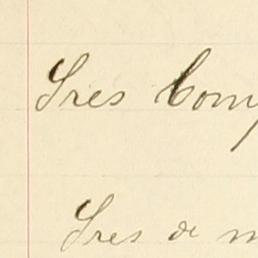 Sres Comp
Sres de m